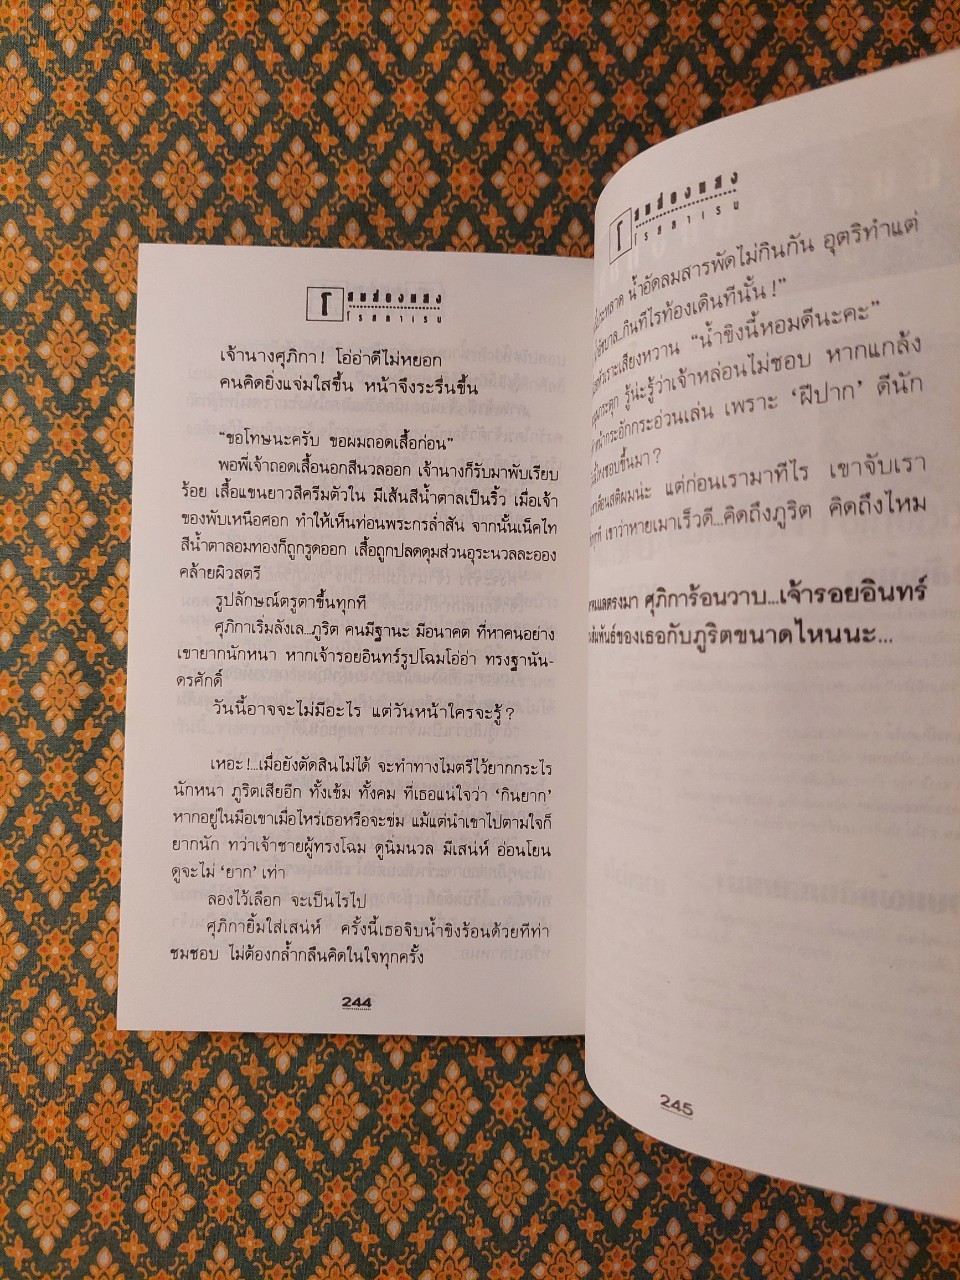 โ สนส่องแสง
โรสลาเรน
เจ้านางศุภิกา! โอ่อ่าดีไม่หยอก
คนคิดยิ่งแจ่มใสขึ้น หน้าจึงระรื่นขึ้น
“ขอโทษนะครับ ขอผมถอดเสื้อก่อน”
พอพี่เจ้าถอดเสื้อนอกสีนวลออก เจ้านางก็รับมาพับเรียบ
ร้อย เสื้อแขนยาวสีครีมตัวใน มีเส้นสีน้ำตาลเป็นริ้ว เมื่อเจ้า
ของพับเหนือศอก ทำให้เห็นท่อนพระกรล่ำสัน จากนั้นเน็คไท
สีน้ำตาลอมทองก็ถูกรูดออก เสื้อถูกปลดดุมส่วนอุระนวลละออง
คล้ายผิวสตรี
รูปลักษณ์ตรูตาขึ้นทุกที
ศุภิกาเริ่มลังเล...ภูริต คนมีฐานะ มีอนาคต ที่หาคนอย่าง
เขายากนักหนา หากเจ้ารอยอินทร์รูปโฉมโอ่อ่า ทรงฐานัน-
ดรศักดิ์
วันนี้อาจจะไม่มีอะไร แต่วันหน้าใครจะรู้?
เหอะ!...เมื่อยังตัดสินไม่ได้ จะทำทางไมตรีไว้ยากกระไร
นักหนา ภูริตเสียอีก ทั้งเข้ม ทั้งคม ที่เธอแน่ใจว่า ‘กินยาก’
หากอยู่ในมือเขาเมื่อไหร่เธอหรือจะข่ม แม้แต่นำเขาไปตามใจก็
ยากนัก ทว่าเจ้าชายผู้ทรงโฉม ดูนิ่มนวล มีเสน่ห์ อ่อนโยน
ดูจะไม่ ‘ยาก’ เท่า
ลองไว้เลือก จะเป็นไรไป
ศุภิกายิ้มใส่เสน่ห์ ครั้งนี้เธอจิบน้ำขิงร้อนด้วยทีท่า
ชมชอบ ไม่ต้องกล้ำกลืนคิดในใจทุกครั้ง
244
โ สนส่องแสง
โรสลาเรน
น้ำอัดลมสารพัดไม่กินกัน อุตริทำแต่
กินทีไรท้องเดินทีนั้น!”
เสียงหวาน “น้ำขิงนี้หอมดีนะคะ”
รู้น่ะรู้ว่าเจ้าหล่อนไม่ชอบ หากแกล้ง
หน้ากระอักกระอ่วนเล่น เพราะ ‘ฝีปาก’ ดีนัก
ชอบขึ้นมา?
แต่ก่อนเรามาทีไร เขาจับเรา
เขาว่าหายเมาเร็วดี...คิดถึงภูริต คิดถึงไหม
ศุภิการ้อนวาบ...เจ้ารอยอินทร์
ของเธอกับภูริตขนาดไหนนะ...
245